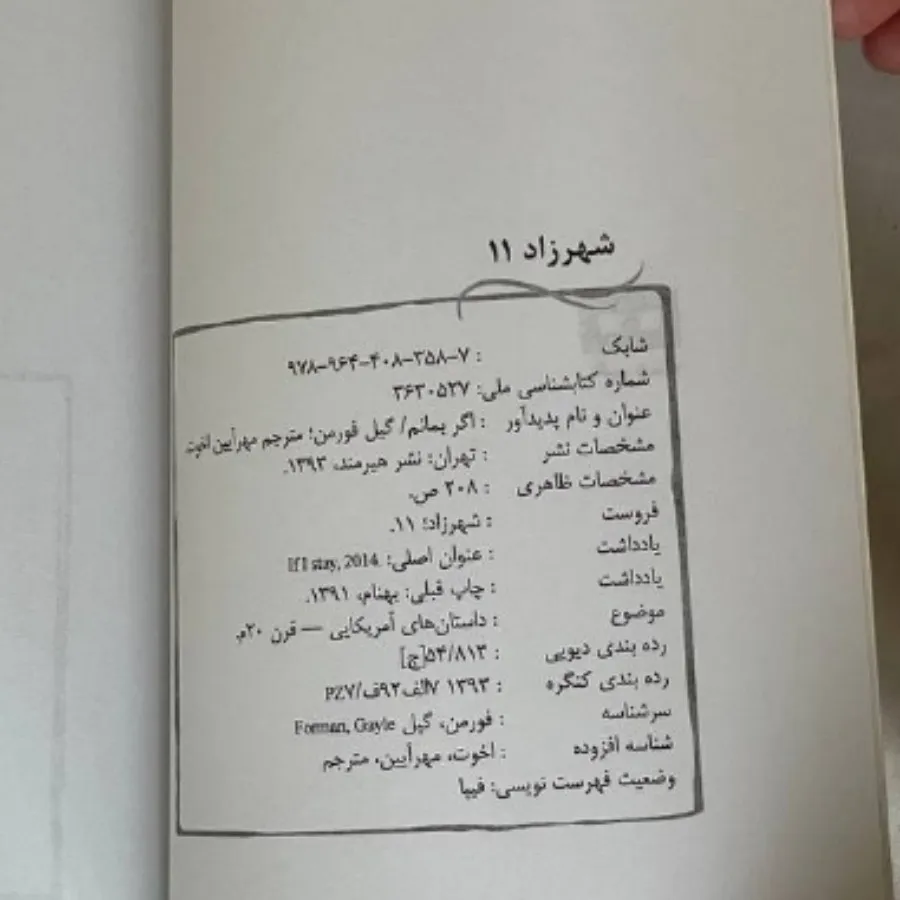 شهرزاد ۱۱
شابک : ۹۷۸-۹۶۴-۴۰۸-۳۵۸-۷
شماره کتابشناسی ملی: ۳۶۳۰۵۲۷
عنوان و نام پدیدآور : اگر بمانم/ گیل فورمن؛ مترجم مهرآیین اخوت.
مشخصات نشر : تهران: نشر هیرمند، ۱۳۹۳.
مشخصات ظاهری : ۲۰۸ ص.
فروست : شهرزاد؛ ۱۱.
یادداشت : عنوان اصلی: If I stay, 2014.
یادداشت : چاپ قبلی: بهنام، ۱۳۹۱.
موضوع : داستان‌های آمریکایی — قرن ۲۰م.
رده بندی دیویی : ۵۴/۸۱۳[ج]
رده بندی کنگره : ۱۳۹۳ ۷الف۹۲ف/PZ۷
سرشناسه : فورمن، گیل Forman, Gayle
شناسه افزوده : اخوت، مهرآیین، مترجم
وضعیت فهرست نویسی: فیپا